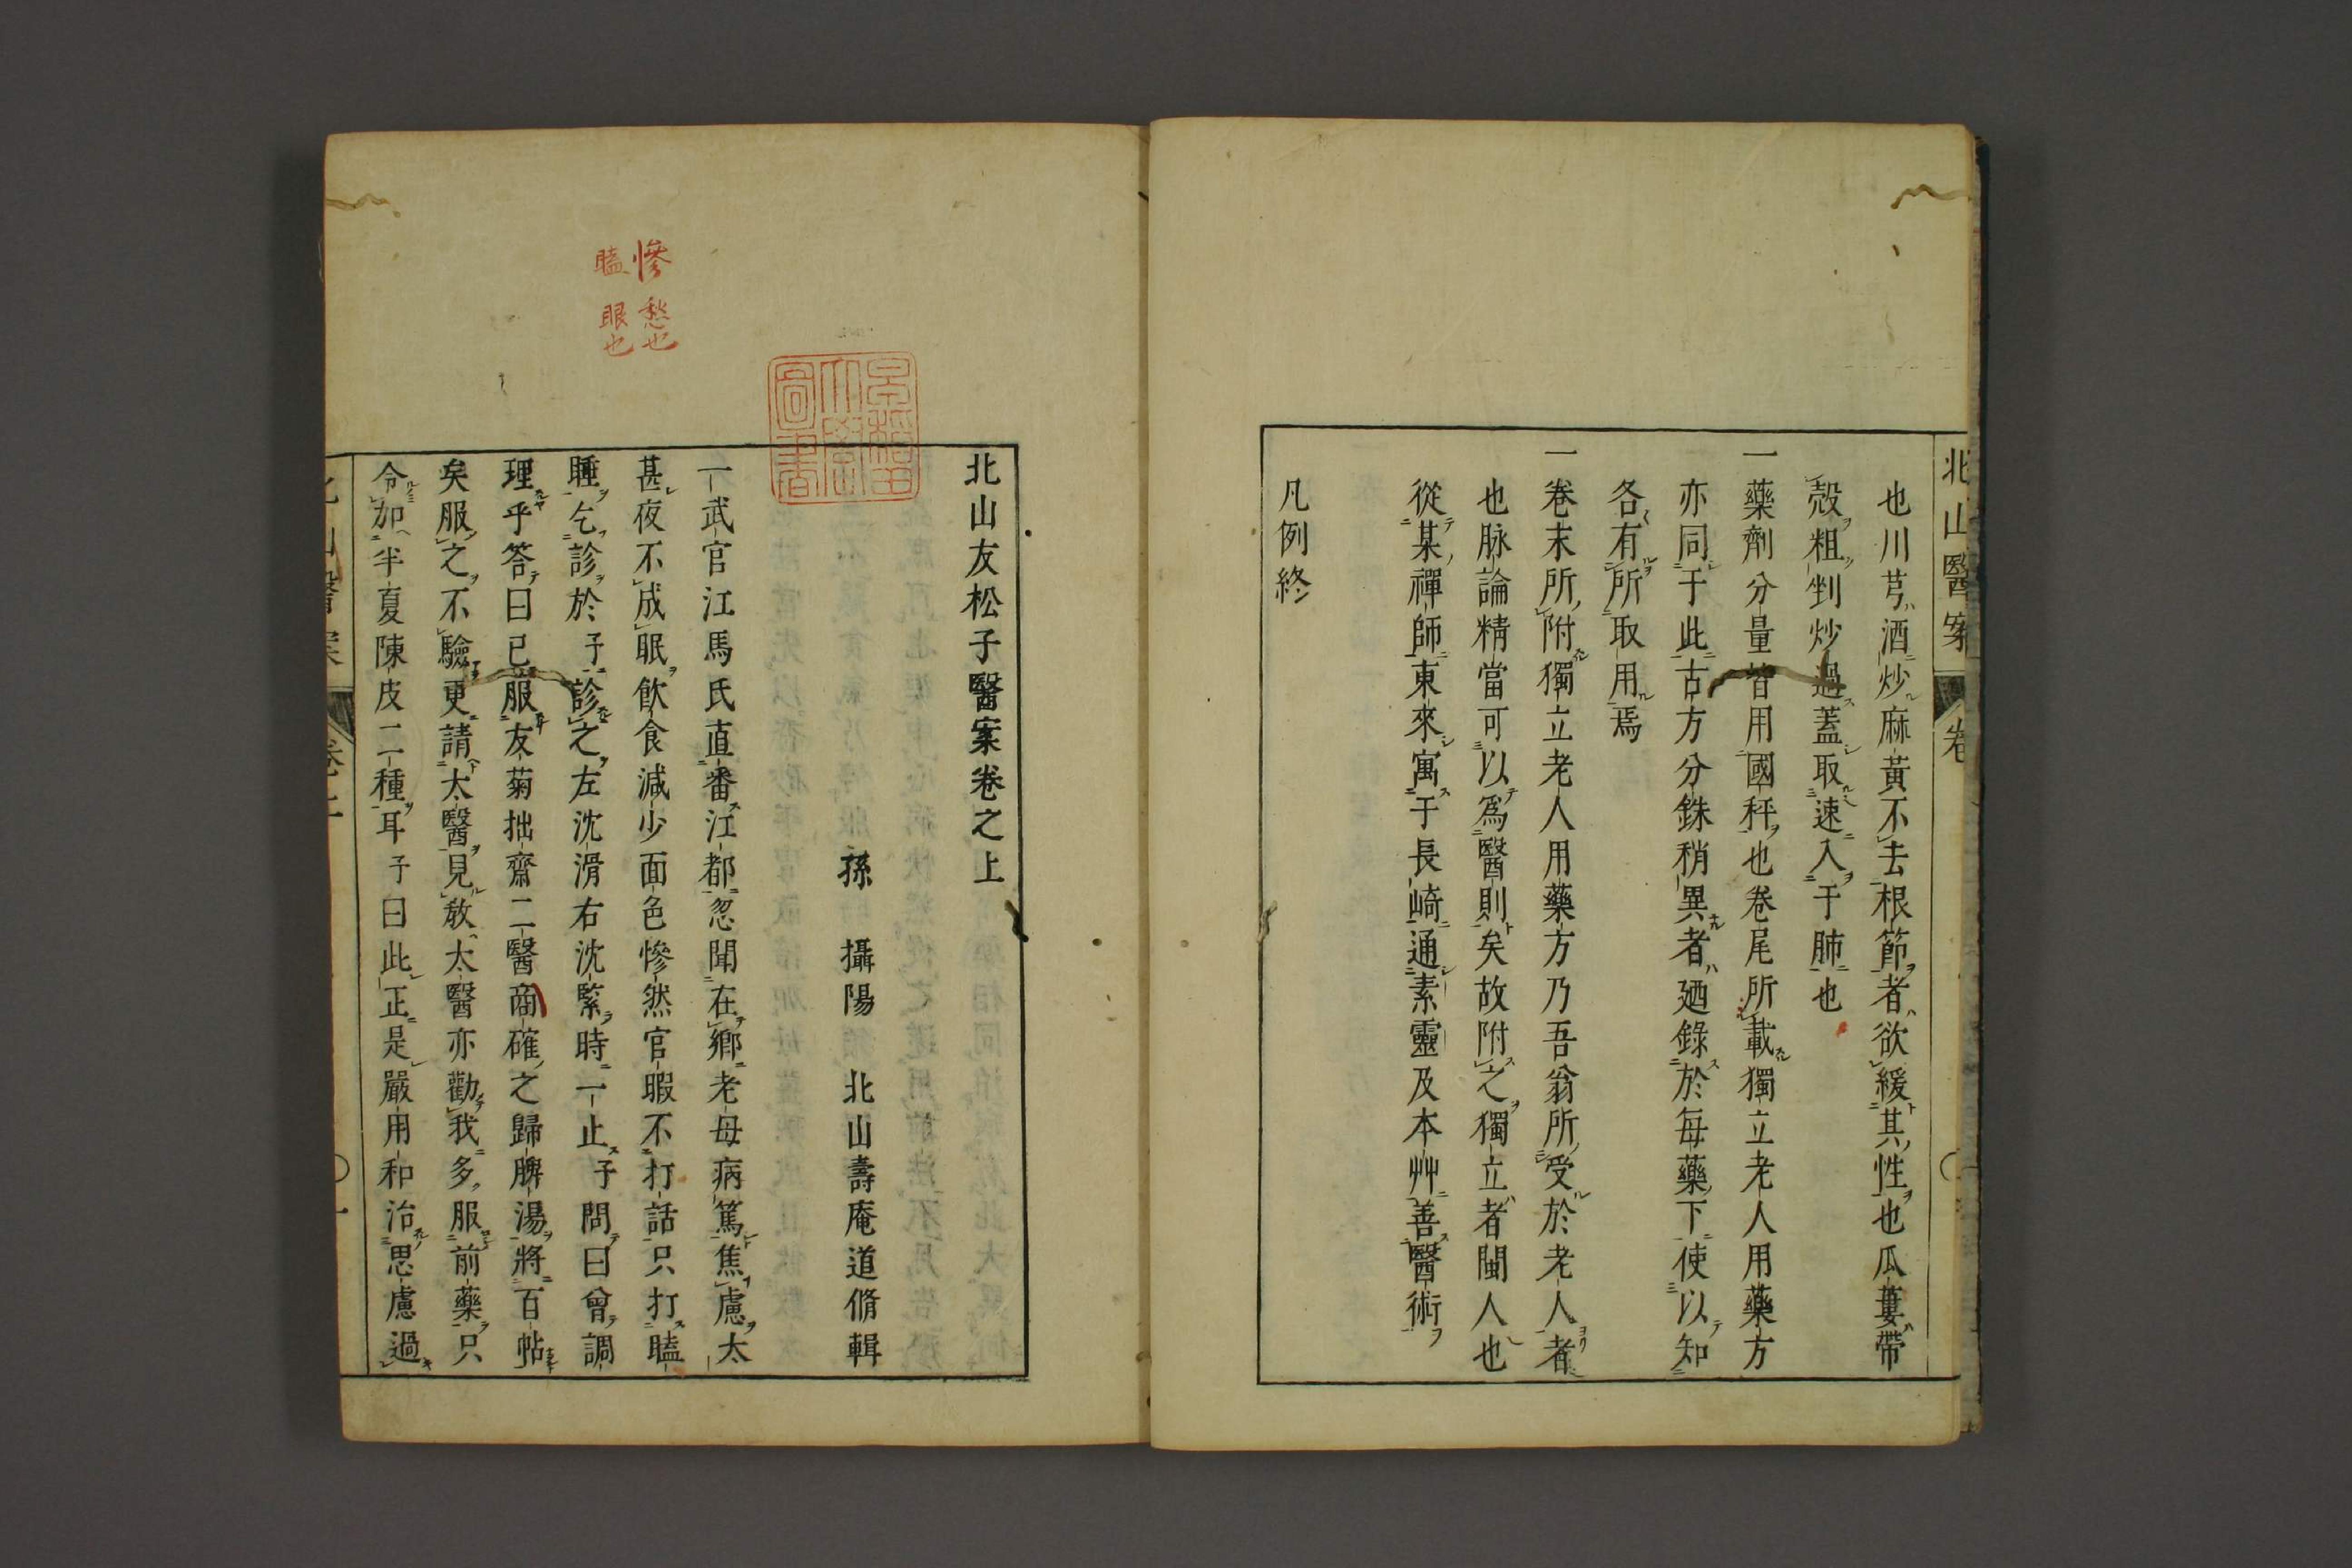 北山醫案
卷
也川芎酒炒麻黃不去根節者欲緩其性也瓜蔞帶
殼粗剉炒過蓋取速入于肺也
一藥劑分量皆用國秤也卷尾所載獨立老人用藥方
亦同于此古方分銖稍異者廼錄於每藥下使以知
各有所取用焉
一卷末所附獨立老人用藥方乃吾翁所受於老人者
也脉論精當可以爲醫則矣故附之獨立者閩人也
從某禪師東來寓于長崎通素靈及本艸善醫術
凡例終
慘愁也
瞌眼也
早稻田大學圖書
北山友松子醫案卷之上
孫 攝陽 北山壽庵道脩輯
一武官江馬氏直番江都忽聞在鄉老母病篤焦慮太
甚夜不成眠飲食減少面色慘然官暇不打話只打瞌
睡乞診於予診之左沈滑右沈緊時一止予問曰曾調
理乎答曰已服友菊拙齋二醫商確之歸脾湯將百帖
矣服之不驗更請太醫見放太醫亦勸我多服前藥只
令加半夏陳皮二種耳予曰此正是嚴用和治思慮過